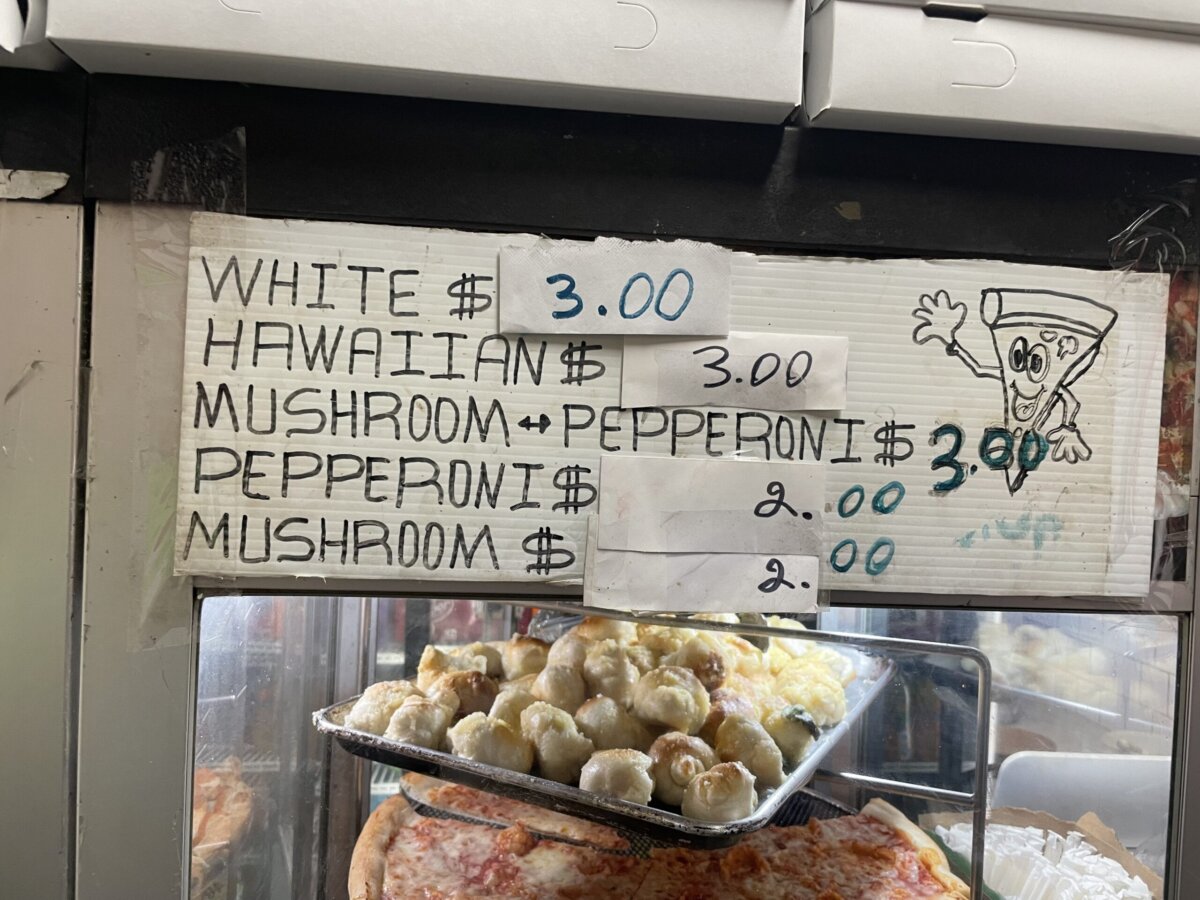 WHITE $ 3.00
HAWAIIAN $ 3.00
MUSHROOM ↔ PEPPERONI $ 3.00
PEPPERONI $ 2.00
MUSHROOM $ 2.00